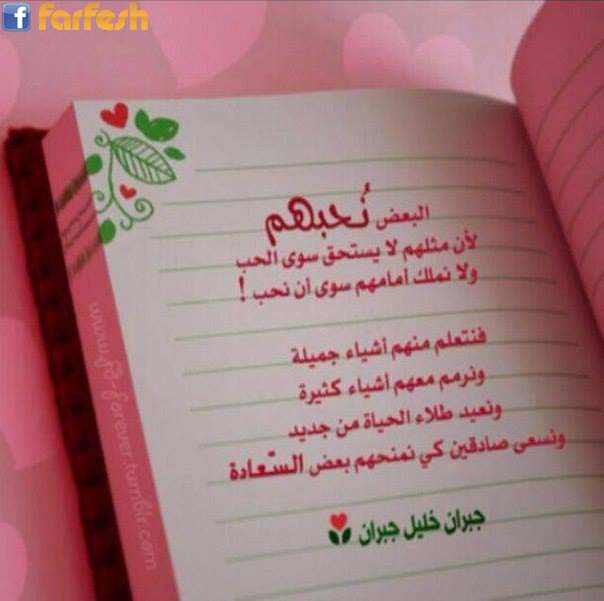 farfesh
البعض نُحبهم
لأن مثلهم لا يستحق سوى الحب
ولا نملك أمامهم سوى ان نحب !
فنتعلم منهم أشياء جميلة
ونرمم معهم أشياء كثيرة
ونعيد طلاء الحياة من جديد
ونسعى صادقين كي نمنحهم بعض السّعادة
جبران خليل جبران